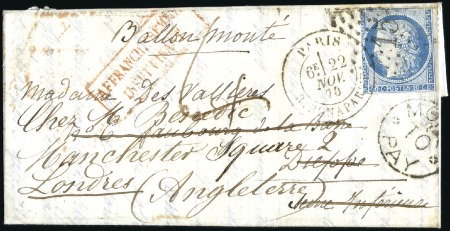 Ballon monté
AFFRANCHISSEMENT
INSUFFISANT
PARIS
6E 22
NOV.
70
R. BONAPARTE
20 C. POSTES 20 C.
Madame Des Vallières
Chez M. Benedic
Faubourg de la Barre
Manchester Square 2
Dieppe
Londres (Angleterre)
Seine Inférieure
MORE
TO
PAY